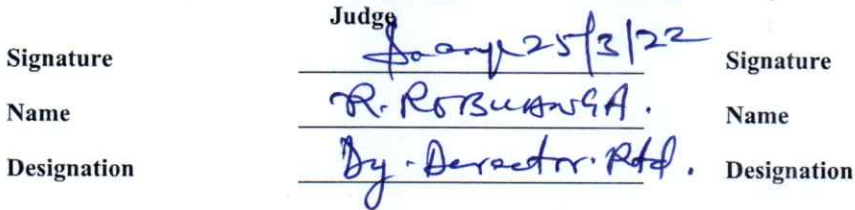 Judge
Signature 25/3/22 Signature
Name R. ROBUANGA. Name
Designation Dy. Director. Rtd. Designation